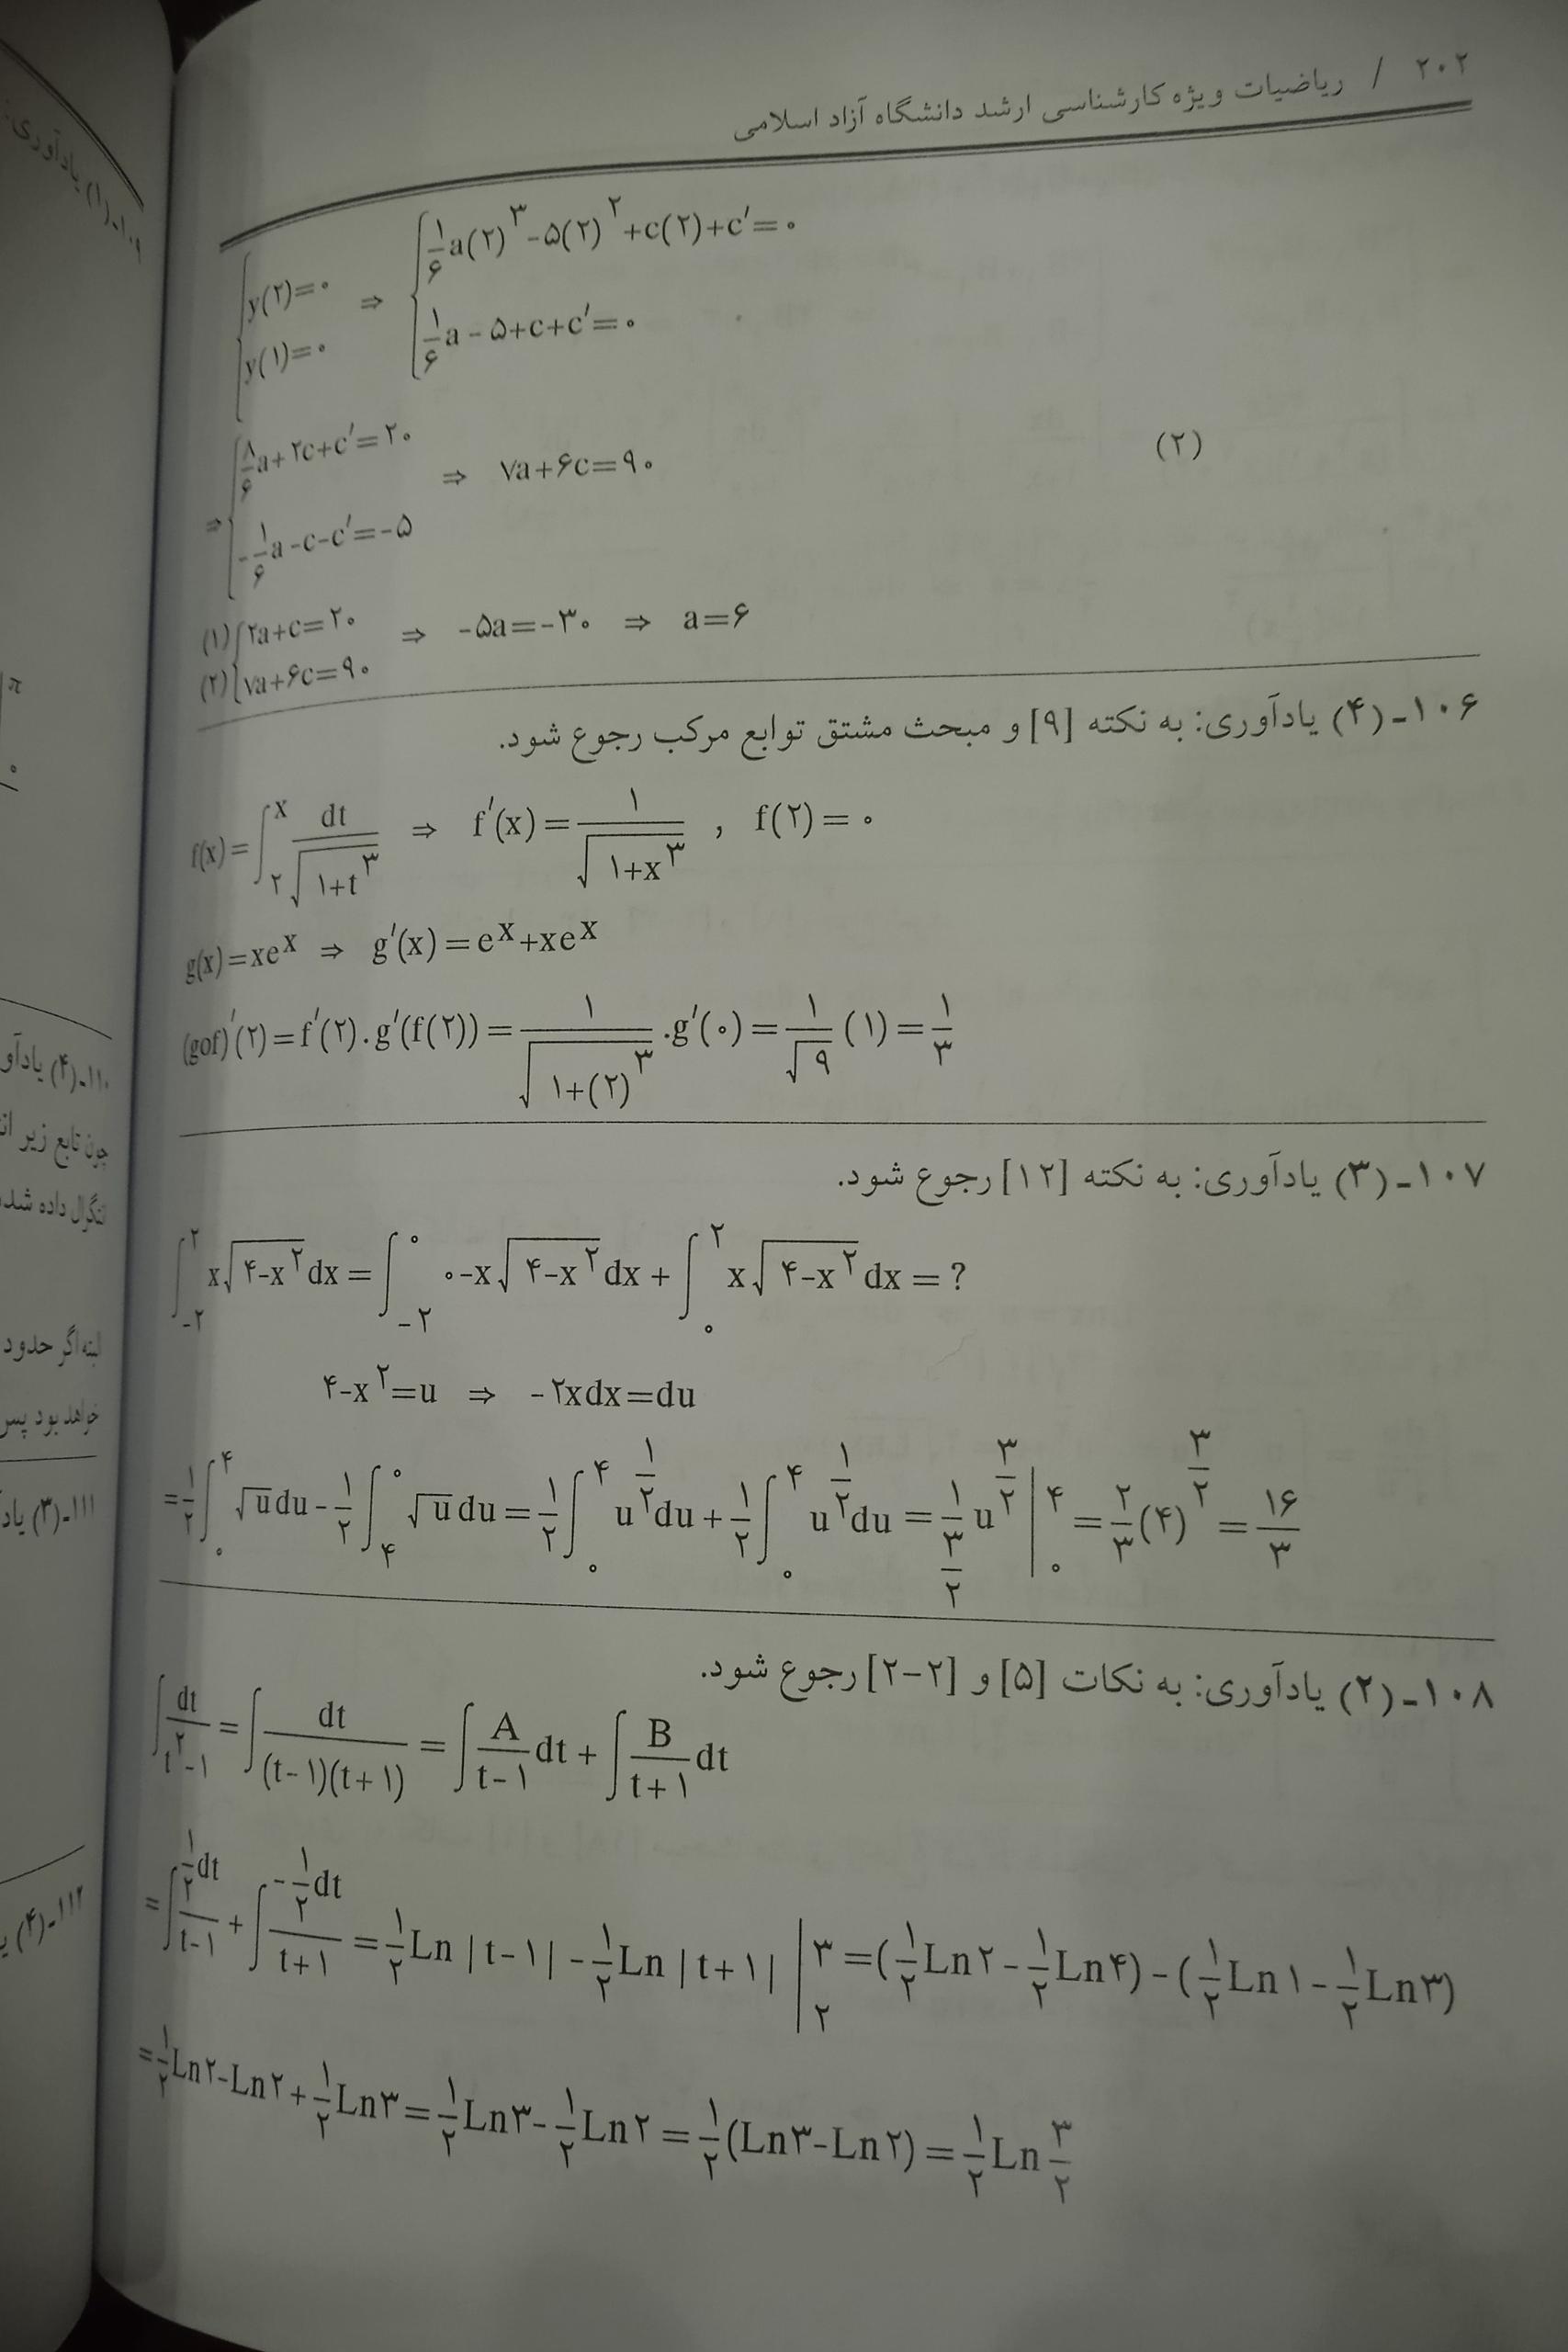 ۲۰۲ / ریاضیات ویژه کارشناسی ارشد دانشگاه آزاد اسلامی
{y(۲)=۰ ⇒ {۱/۶ a(۲)^۳-۵(۲)^۲+c(۲)+c′=۰
{y(۱)=۰ {۱/۶ a-۵+c+c′=۰
⇒{۸/۶ a+۲c+c′=۲۰ ⇒ ۷a+۶c=۹۰ (۲)
{-۱/۶ a-c-c′=-۵
(۱){۲a+c=۲۰ ⇒ -۵a=-۳۰ ⇒ a=۶
(۲){۷a+۶c=۹۰
۱۰۶-(۴) یادآوری: به نکته [۹] و مبحث مشتق توابع مرکب رجوع شود.
f(x)=∫_۲^x dt/√(۱+t^۳) ⇒ f′(x)=۱/√(۱+x^۳) , f(۲)=۰
g(x)=xe^x ⇒ g′(x)=e^x+xe^x
(gof)′(۲)=f′(۲).g′(f(۲))=۱/√(۱+(۲)^۳).g′(۰)=۱/√۹ (۱)=۱/۳
۱۰۷-(۳) یادآوری: به نکته [۱۲] رجوع شود.
∫_-۲^۲ x√(۴-x^۲)dx=∫_-۲^۰ ۰-x√(۴-x^۲)dx+∫_۰^۲ x√(۴-x^۲)dx=?
۴-x^۲=u ⇒ -۲xdx=du
=۱/۲∫_۰^۴ √u du-۱/۲∫_۴^۰ √u du=۱/۲∫_۰^۴ u^(۱/۲)du+۱/۲∫_۰^۴ u^(۱/۲)du=۱/(۳/۲) u^(۳/۲)|_۰^۴=۲/۳(۴)^(۳/۲)=۱۶/۳
۱۰۸-(۲) یادآوری: به نکات [۵] و [۲-۲] رجوع شود.
∫dt/(t^۲-۱)=∫dt/((t-۱)(t+۱))=∫A/(t-۱) dt+∫B/(t+۱) dt
=∫(۱/۲ dt)/(t-۱)+∫(-۱/۲ dt)/(t+۱)=۱/۲ Ln|t-۱|-۱/۲ Ln|t+۱| |_۲^۳=(۱/۲ Ln۲-۱/۲ Ln۴)-(۱/۲ Ln۱-۱/۲ Ln۳)
=۱/۲ Ln۲-Ln۲+۱/۲ Ln۳=۱/۲ Ln۳-۱/۲ Ln۲=۱/۲(Ln۳-Ln۲)=۱/۲ Ln ۳/۲
۱۰۹-(۱) یادآوری:
π
۰
۱۱۰-(۴)
چون تابع زیر
داده شده
البته اگر حدود
خواهد بود پس
۱۱۱-(۳)
۱۱۲-(۴)